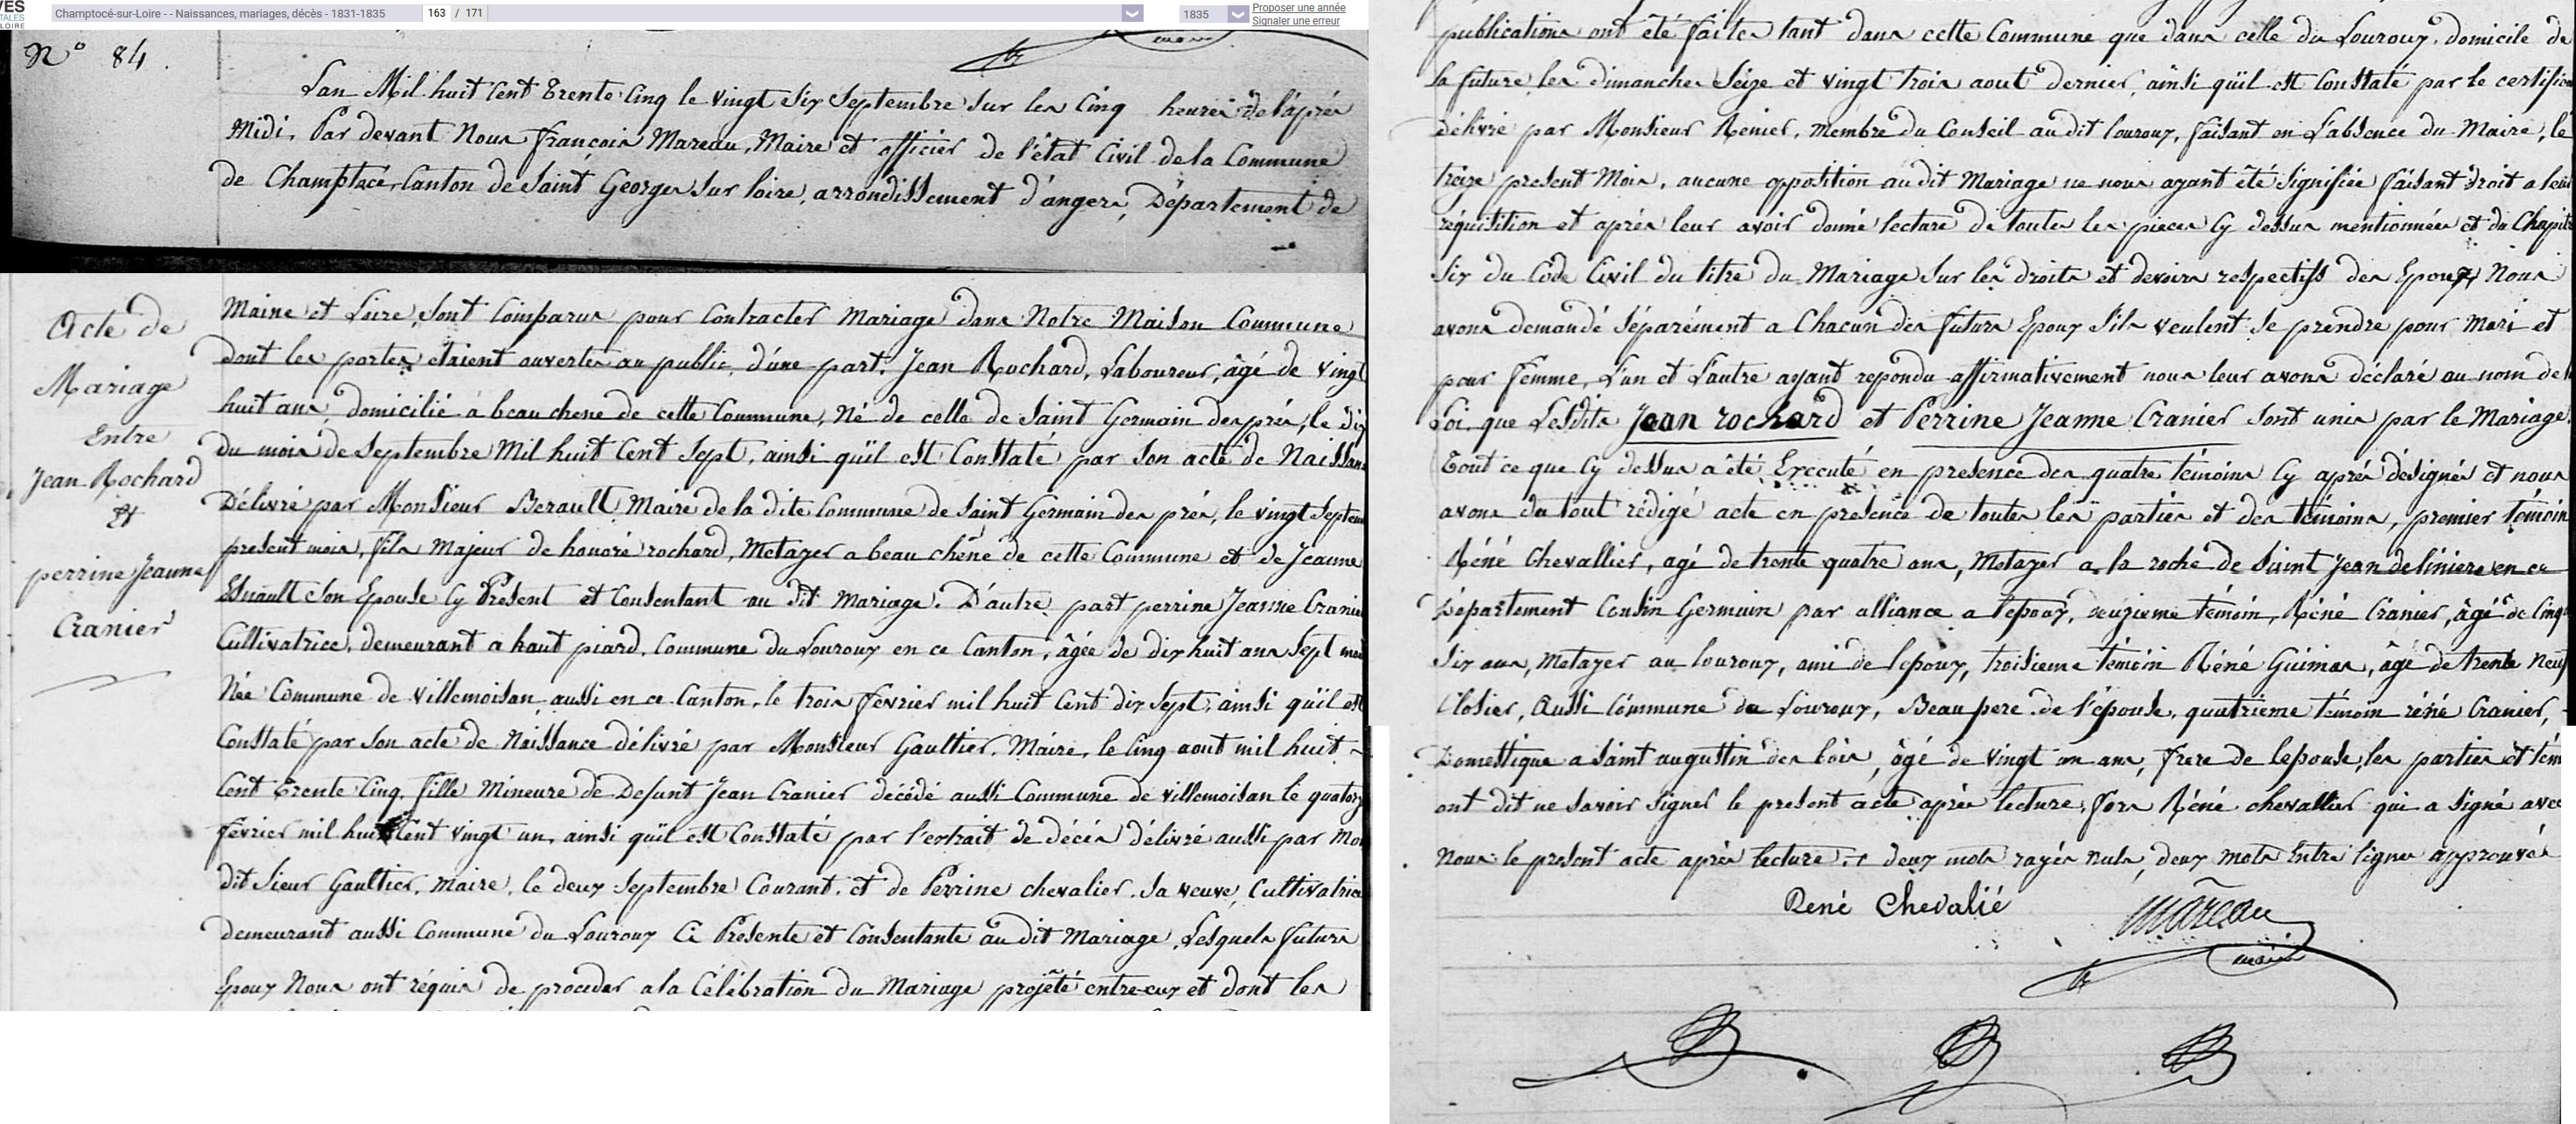 VES
TALES
LOIRE
Champtocé-sur-Loire - - Naissances, mariages, décès - 1831-1835
163 / 171
1835
Proposer une année
Signaler une erreur
maire
N° 84.
L'an Mil huit Cent Trente Cinq le vingt six Septembre sur les Cinq heures de l'après
Midi, Par devant Nous François Mareau, Maire et officier de l'état Civil de la Commune
de Champtocé, Canton de Saint Georges sur Loire, arrondissement d'angers, Département de
Acte de
Mariage
Entre
Jean Rochard
Et
perrine Jeanne
Cranier
Maine et Loire, Sont Comparus pour Contracter Mariage dans Notre Maison Commune
dont les portes etaient ouvertes au public, d'une part, Jean Rochard, Laboureur, âgé de vingt
huit ans, domicilié a beau chene de cette Commune, Né de celle de Saint Germain des prés, le dix
du mois de Septembre Mil huit Cent Sept, ainsi qu'il est Constaté par son acte de Naissan
Délivré par Monsieur Berault Maire de la dite Commune de Saint Germain des prés, le vingt Septem
present mois, fils Majeur de honoré rochard, Metayer a beau chêne de cette Commune et de Jeanne
Esnault son Epouse Cy Présent et Consentant au dit Mariage. D'autre part perrine Jeanne Cranier
Cultivatrice, demeurant a haut piard, Commune du Louroux en ce Canton, âgée de dix huit ans Sept mois
Née Commune de Villemoisan aussi en ce Canton, le trois Février mil huit Cent dix Sept, ainsi qu'il est
Constaté par Son acte de Naissance délivré par Monsieur Gaultier, Maire, le Cinq aout mil huit
Cent Trente Cinq, fille Mineure de Defunt Jean Cranier décédé aussi Commune de villemoisan le quatorz
février mil huit Cent vingt un, ainsi qu'il est Constaté par l'extrait de décès délivré aussi par mon
dit Sieur Gaultier, maire, le deux Septembre Courant, et de Perrine chevalier, Sa veuve, Cultivatrice
demeurant aussi Commune du Louroux Ci Présente et Consentante au dit Mariage, Lesquels futurs
Epoux Nous ont réquis de proceder a la Célébration du Mariage projété entre eux et dont les
publications ont été faites tant dans cette Commune que dans celle du Louroux, domicile de
la future les dimanches Seize et vingt trois aout dernier, ainsi qu'il est Constaté par le certific
délivré par Monsieur Renier, membre du Conseil au dit louroux, faisant en L'absence du Maire, le
treize present Mois, aucune opposition au dit Mariage ne nous ayant été signifiée faisant droit a leur
réquisition et après leur avoir donné lecture de toutes les pieces Cy dessus mentionnées et du Chapitr
Six du Code Civil du titre du Mariage Sur les droits et devoirs respectifs des Epoux, Nous
avons demandé séparément a Chacun des futurs Epoux S'ils veulent se prendre pour mari et
pour femme, L'un et L'autre ayant repondu affirmativement nous leur avons déclaré au nom de la
Loi que Lesdits Jean rochard et Perrine Jeanne Cranier sont unis par le Mariage.
Tout ce que Cy dessus a été Executé en presence des quatre témoins Cy après désignés et nous
avons du tout rédigé acte en presence de toutes les parties et des témoins, premier témoin
Réné Chevallier, agé de trente quatre ans, Metayer a la roche de Saint Jean de linieres en ce
Département Cousin Germain par alliance a l'epoux, deuxieme témoin, Réné Cranier, âgé de Cinq
Six ans, Metayer au louroux, ami de l'epoux, troisieme témoin Réné Guimas, âgé de trente Neuf
Closier, Aussi Commune du Louroux, Beau pere de l'épouse, quatrieme témoin réné Cranier,
Domestique a Saint augustin des bois, âgé de vingt un ans, frere de lepouse, les parties et tém
ont dit ne savoir signer le present acte après lecture, fors Réné chevallier qui a signé avec
Nous le present acte après lecture. deux mots rayés nuls, deux mots Entre lignes approuvés
René Chevalié
Mareau
maire